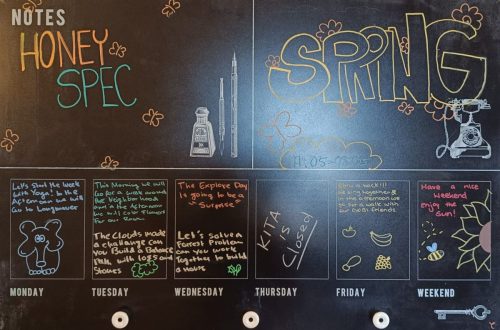 NOTES
HONEY
SPEC
SPRING
Let's Start the Week
with Yoga! In the
Afternoon we will
Go to Longwater
This Morning we will
Go for a walk around
the Neighborhood
and in the Afternoon
we will Color Flowers
For our Room
The Clouds made
a challenge can
you Build a Balance
with logs and
Stones
The Explore Day
is going to be a
"Surprise"
Let's solve a
Forrest Problem
can you work
Together to build
a House
KITA
is
Closed
in the afternoon we
go for a walk with
our friends
Have a nice
Weekend
enjoy the
Sun!
MONDAY
TUESDAY
WEDNESDAY
THURSDAY
FRIDAY
WEEKEND